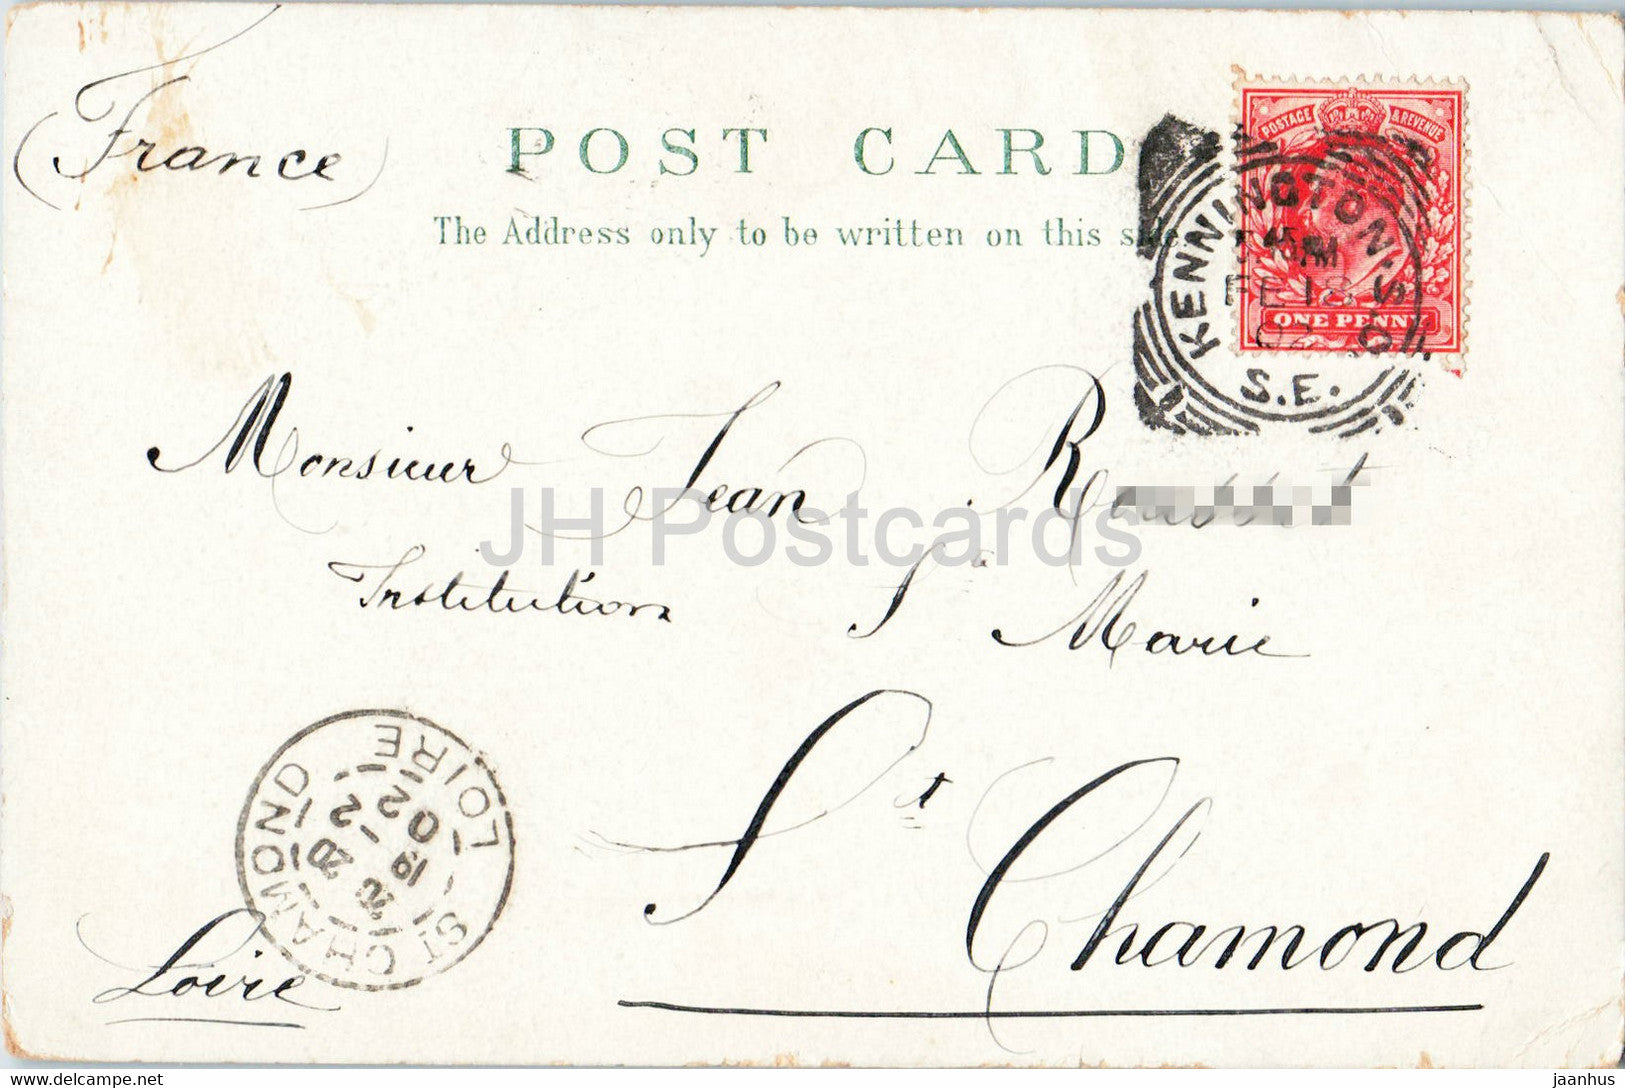 (France)
POST CARD
The Address only to be written on this side
POSTAGE & REVENUE
ONE PENNY
KENNINGTON. S. O.
5.45 PM
FE 18
02
S.E.
Monsieur Jean
Institution Sᵗᵉ Marie
Sᵗ Chamond
Loire
ST CHAMOND LOIRE
20 -2
02
JH Postcards
delcampe.net
jaanhus